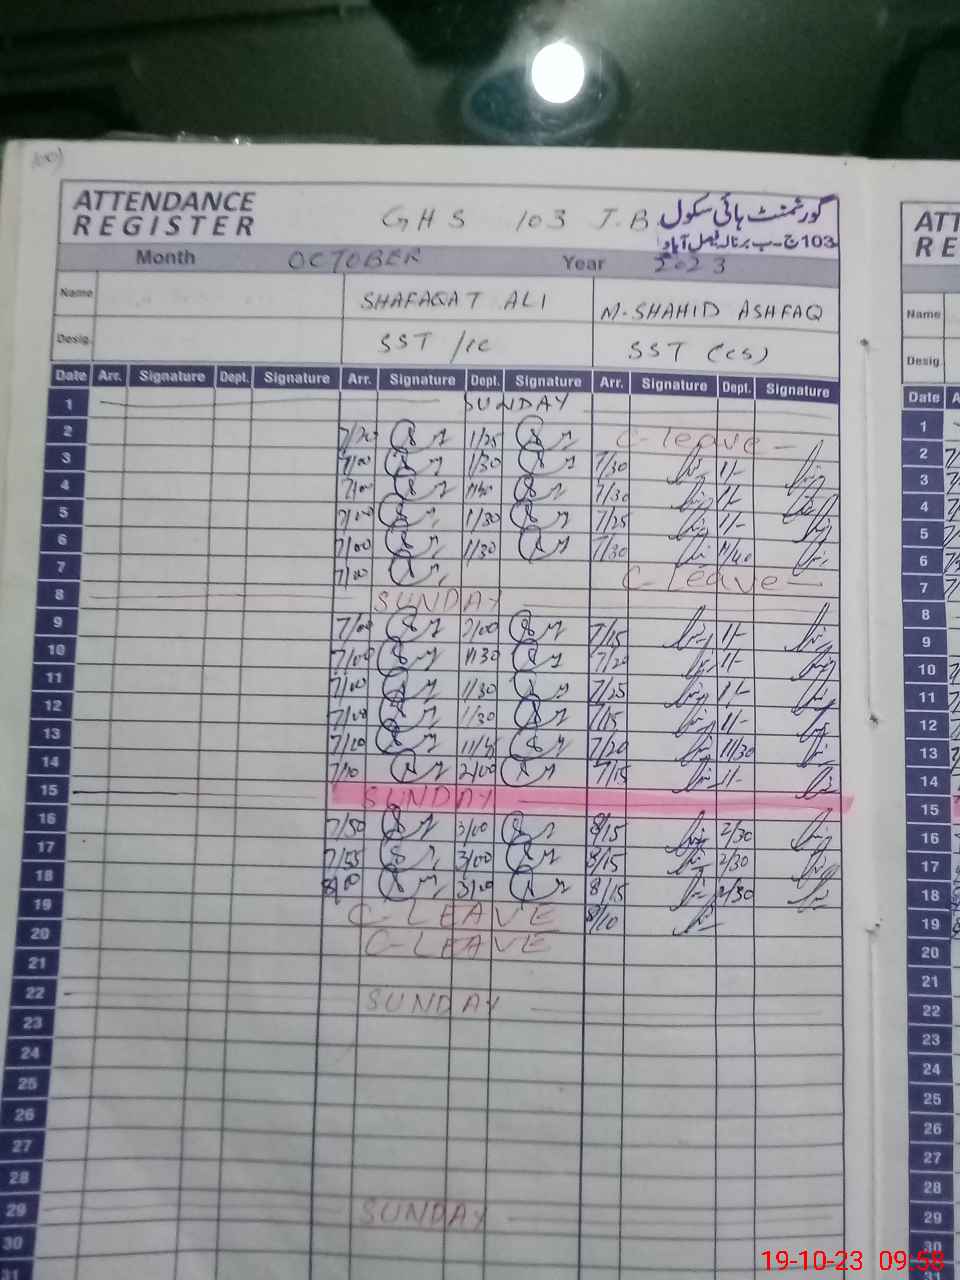 ATTENDANCE
REGISTER
GHS 103 J.B
گورنمنٹ ہائی سکول
103 ج-ب برنالہ فیصل آباد
Month OCTOBER Year 2023
Name SHAFAQAT ALI M. SHAHID ASHFAQ
Desig. SST /IC SST (CS)
Date Arr. Signature Dept. Signature Arr. Signature Dept. Signature Arr. Signature Dept. Signature
1 SUNDAY
2 7/20 1/25 C-leave
3 7/00 1/30 7/30 1/-
4 7/00 7/30 1/-
5 7/00 1/30 7/25 1/-
6 7/00 1/30 7/30 11/40
7 7/00 C leave
8 SUNDAY
9 7/00 2/00 7/15 1/-
10 7/00 1/30 7/20 1/-
11 7/00 1/30 7/25 1/-
12 7/00 1/30 7/15 1/-
13 7/20 11/45 7/20 11/30
14 7/10 2/00 7/15 1/-
15 SUNDAY
16 7/50 3/00 8/15 2/30
17 7/55 3/00 8/15 2/30
18 8/00 3/00 8/15 2/30
19 C-LEAVE 8/10
20 C-LEAVE
21
22 SUNDAY
23
24
25
26
27
28
29 SUNDAY
30
31
Name
Desig.
Date
1
2
3
4
5
6
7
8
9
10
11
12
13
14
15
16
17
18
19
20
21
22
23
24
25
26
27
28
29
30
19-10-23 09:58